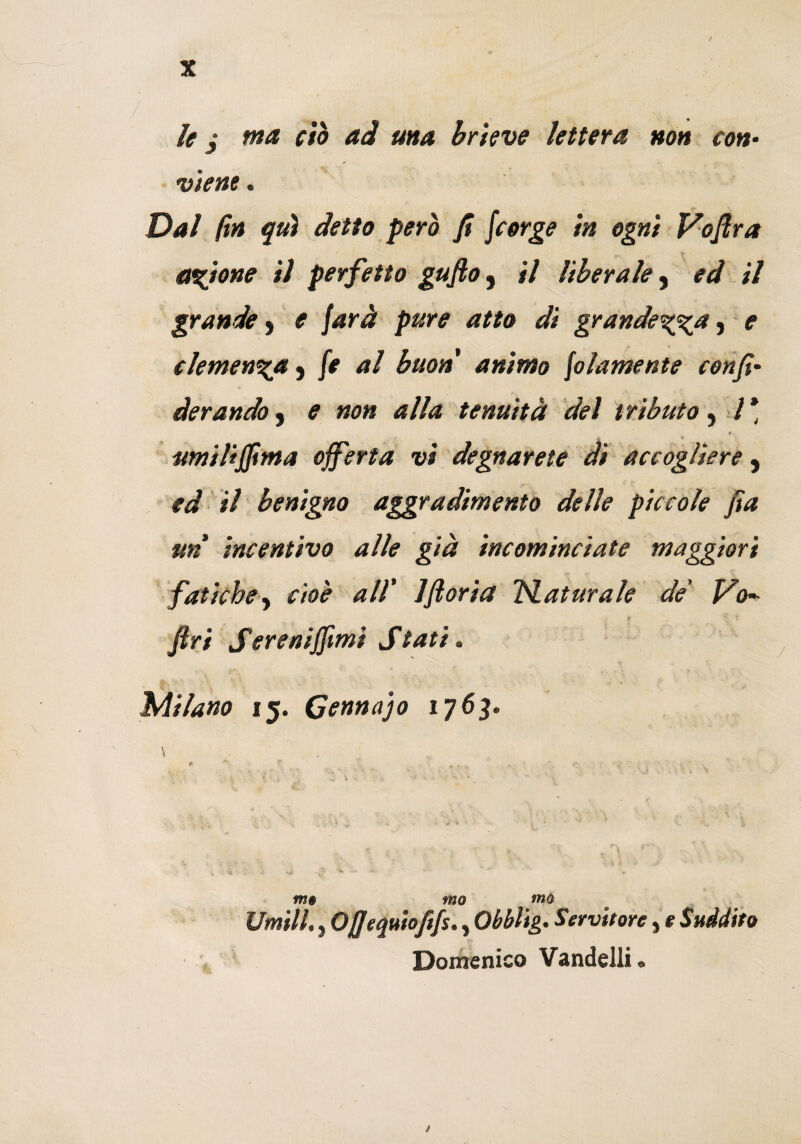 X
le ; ma ciò ad una brieve lettera non con-
viene.
Dal fin quì detto però ſi ſcorge in ogni Voſtra
azione il perfetto guſto, il liberale, ed il
grande, e ſarà pure atto di grandezza, e
clemenza, ſe al buon' animo ſolamente conſi-
derando, e non alla tenuità del tributo, l'
umiliſſima offerta vi degnarete di accogliere,
ed il benigno aggradimento delle piccole ſia
un' incentivo alle già incominciate maggiori
fatiche, cioè all' Iſtoria Naturale de' Vo-
ſtri Sereniſſimi Stati.
Milano 15. Gennajo 1763.
Umill.mo, Oſſequioſiſs.mo, Obblig.mo Servitore, e Suddito
Domenico Vandelli.